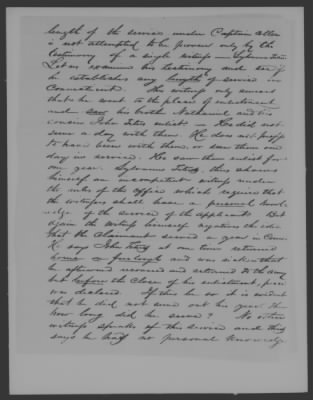 length of the service under Captain Allen
is not attempted to be proved only by the
testimony of a single witness — Sylvanus
Let us examine his testimony and see if
he establishes any length of service in
Connecticut. This witness only swears
that he went to the place of enlistment
and saw his brother Nathaniel and his
cousin John Titus enlist — He did not
serve a day with them. He does not profess
to have been with them, or saw them one
day in service. He saw them enlist for
one year. Sylvanus Titus thus shows
himself an incompetent witness under
the rules of the office which require that
the witness shall have a personal knowl-
edge of the service of the applicant. But
again the witness himself negatives the idea
that the Claimant served a year in Conn.
He says John Titus at one time returned
home on furlough and was sick — that
he afterward recovered and returned to the army
but before the close of his enlistment, peace
was declared. If this be so it is evident
that he did not serve out his year. Then
how long did he serve? No other
witness speaks of this service and this
says he had no personal knowledge